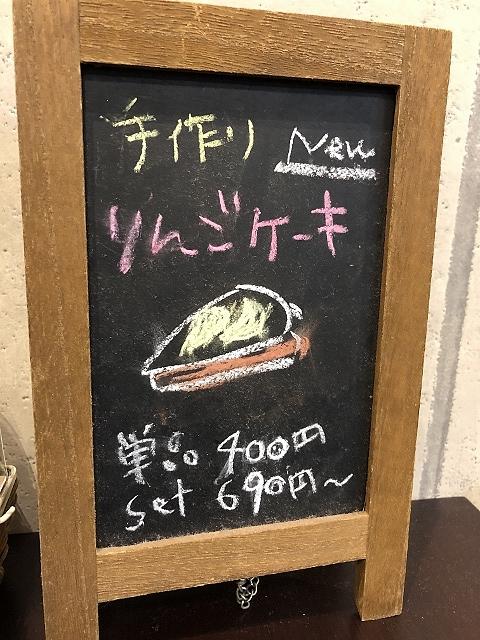 手作り New
りんごケーキ
単品 400円
set 690円～